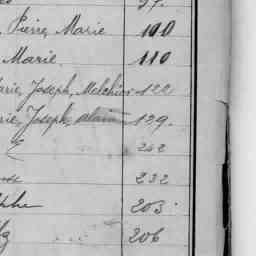 Pierre, Marie 100
Marie. 110
arie, Joseph, Melchior 122
rie, Joseph, alain 129.
242
232
phe 203.
206